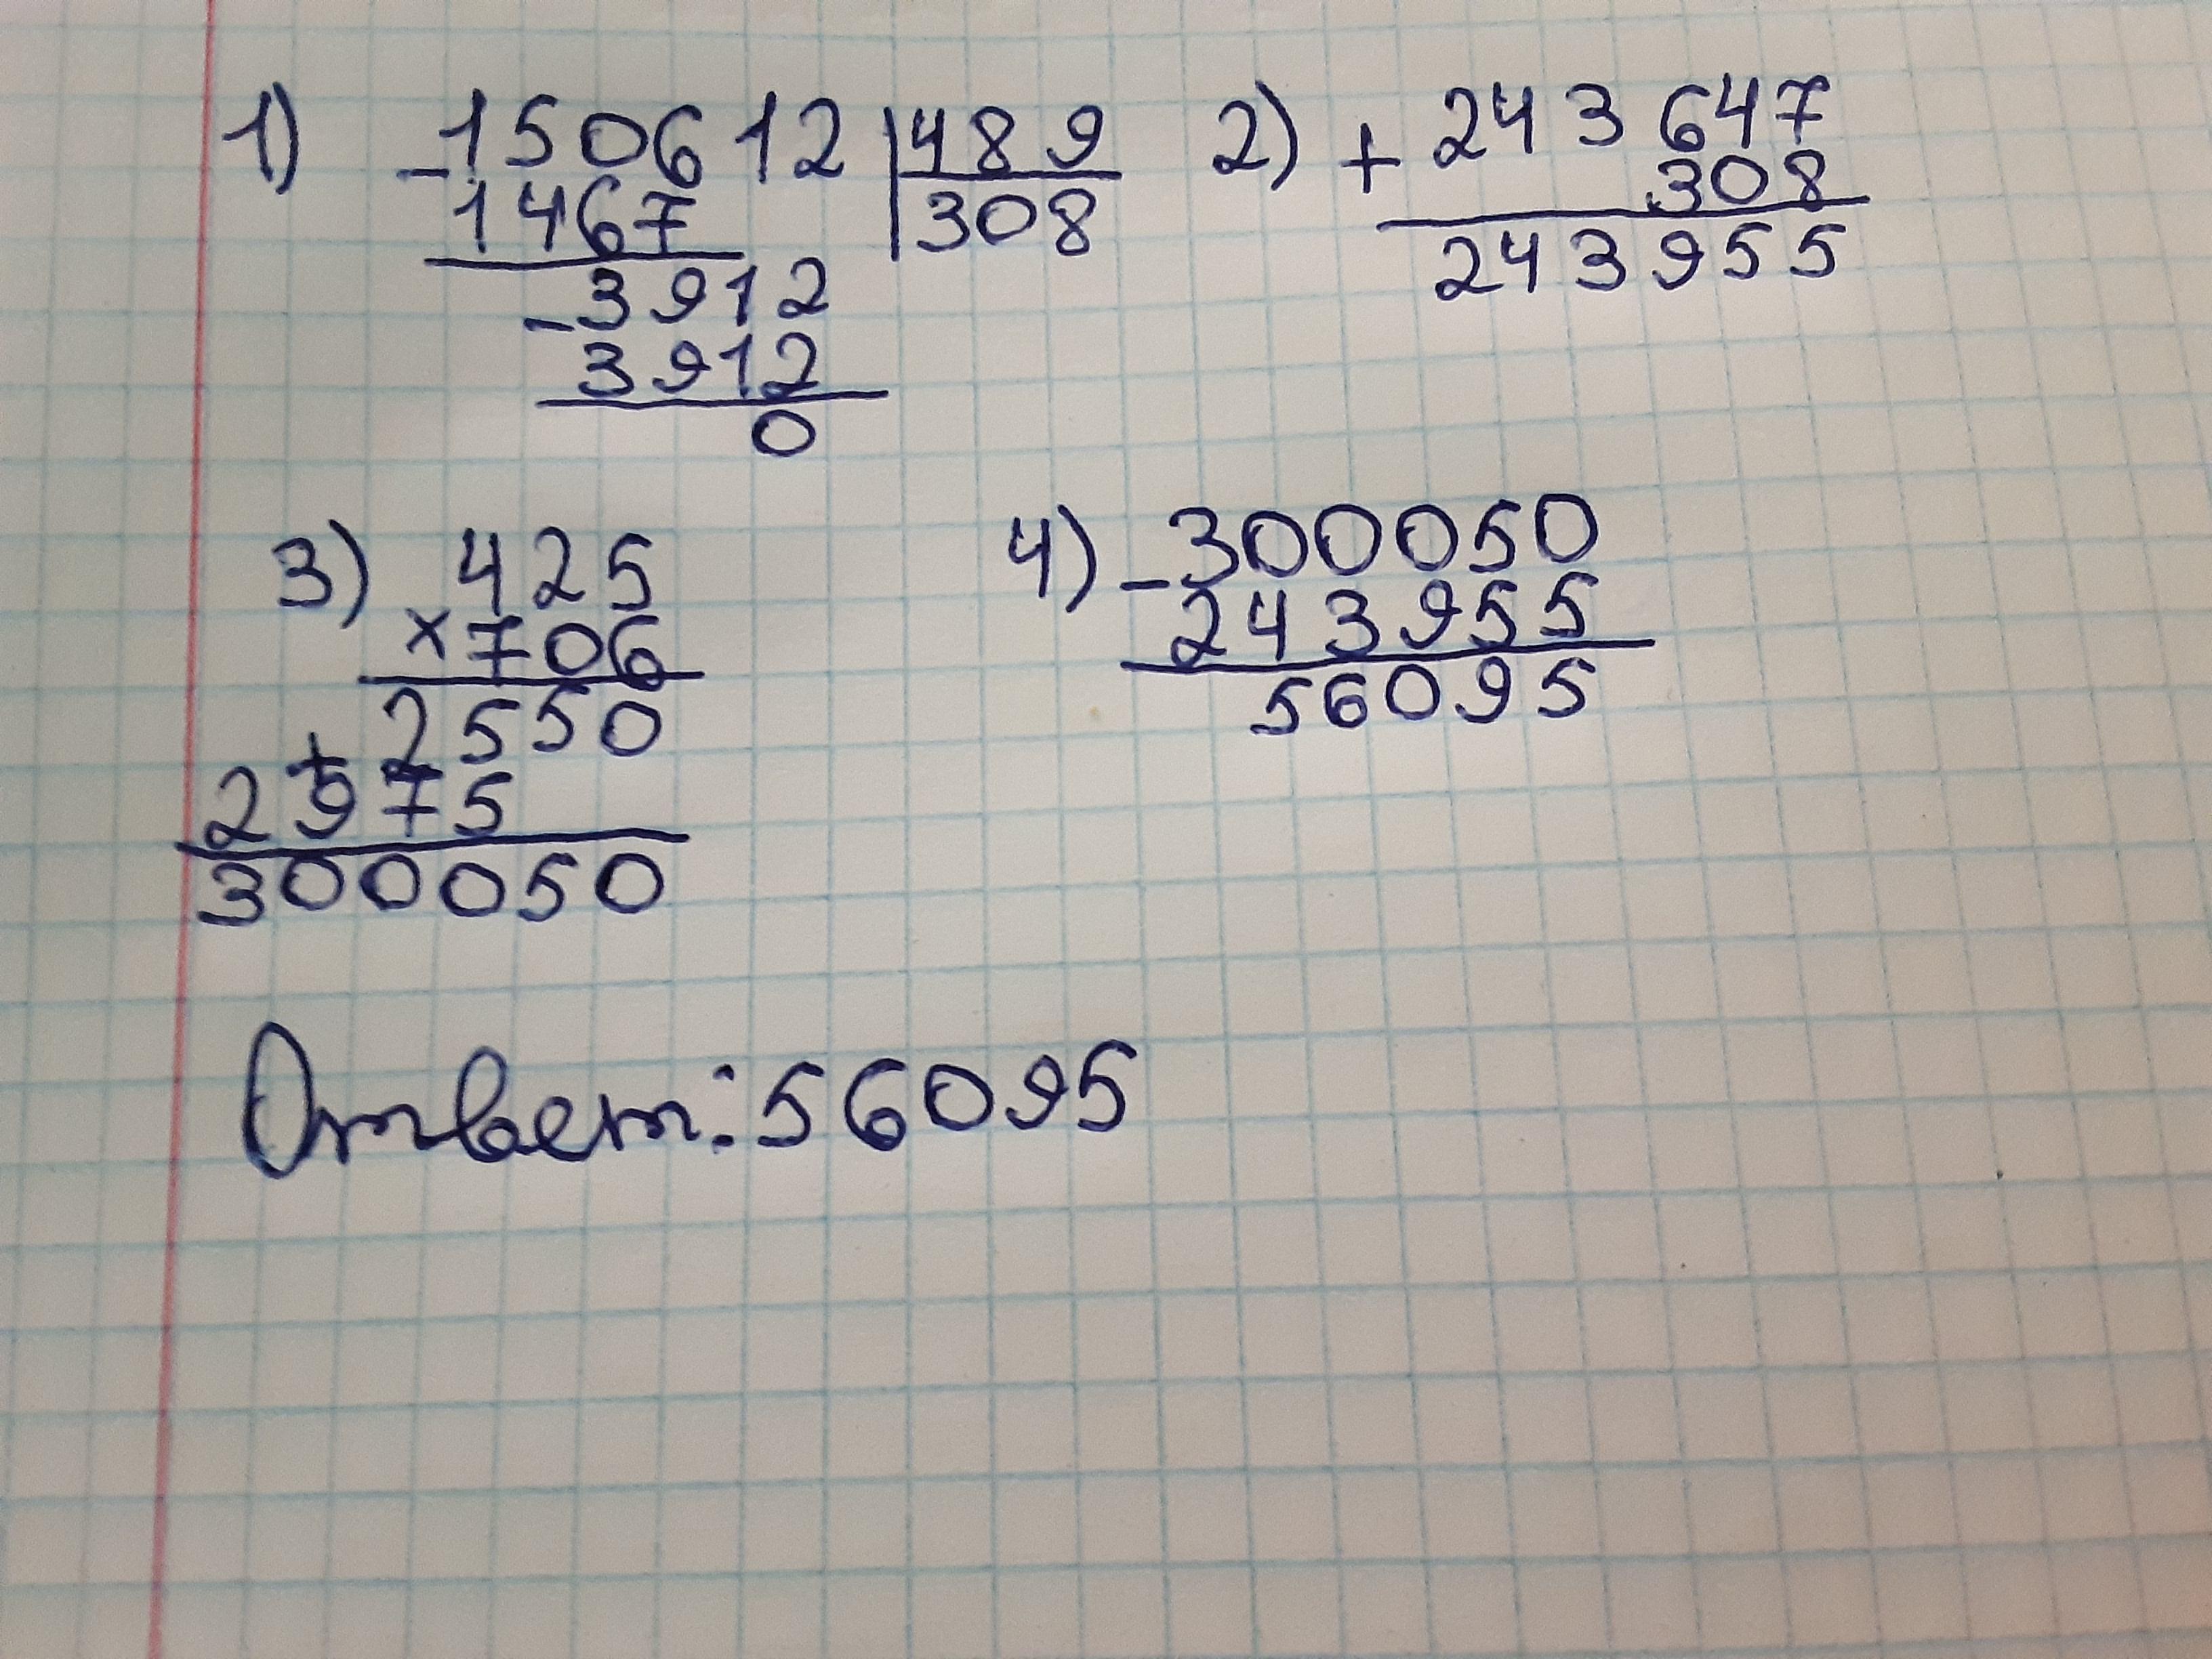 1) -150612 | 489
1467 | 308
-3912
3912
0
2) + 243647
308
243955
3) 425
×706
+2550
2975
300050
4) -300050
243955
56095
Ответ: 56095